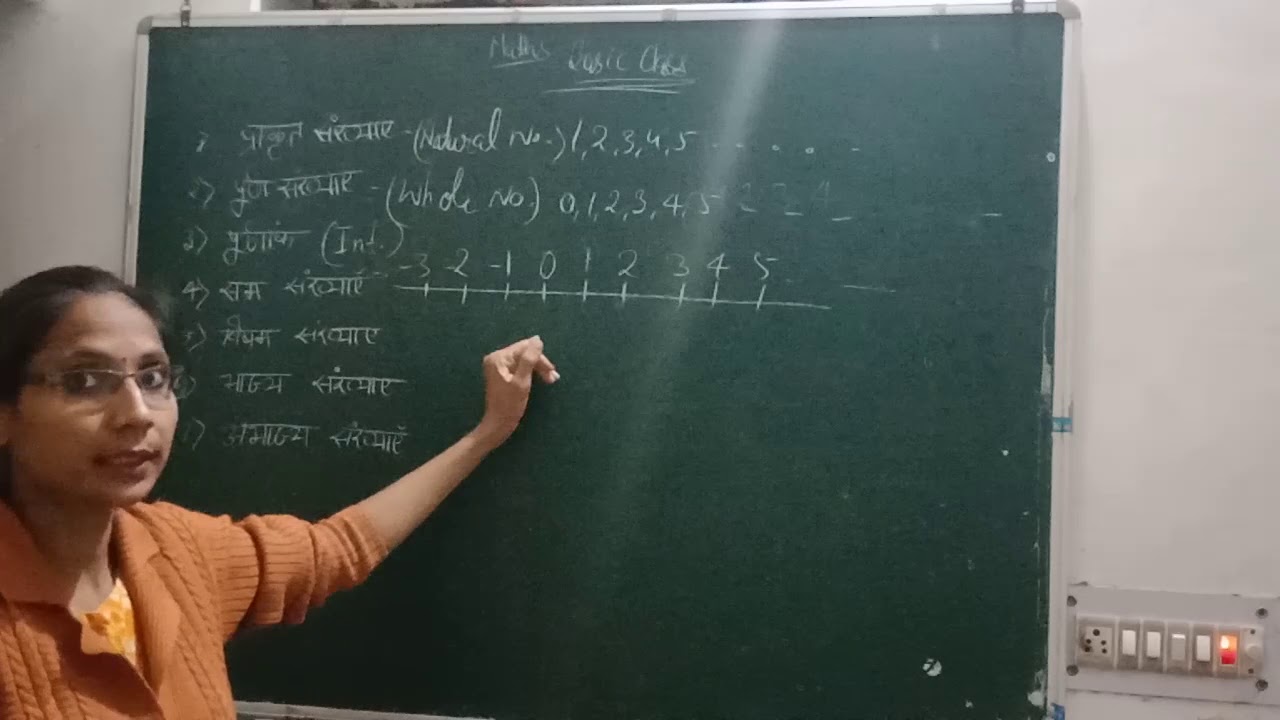 Maths Basic Class
1) प्राकृत संख्याए - (Natural No.) 1, 2, 3, 4, 5 - - . . -
2) पूर्ण संख्याए - (Whole No.) 0, 1, 2, 3, 4, 5
3) पूर्णांक (Int.)
-3 -2 -1 0 1 2 3 4 5
4) सम संख्याएँ
5) विषम संख्याए
6) भाज्य संख्याए
7) अभाज्य संख्याएँ